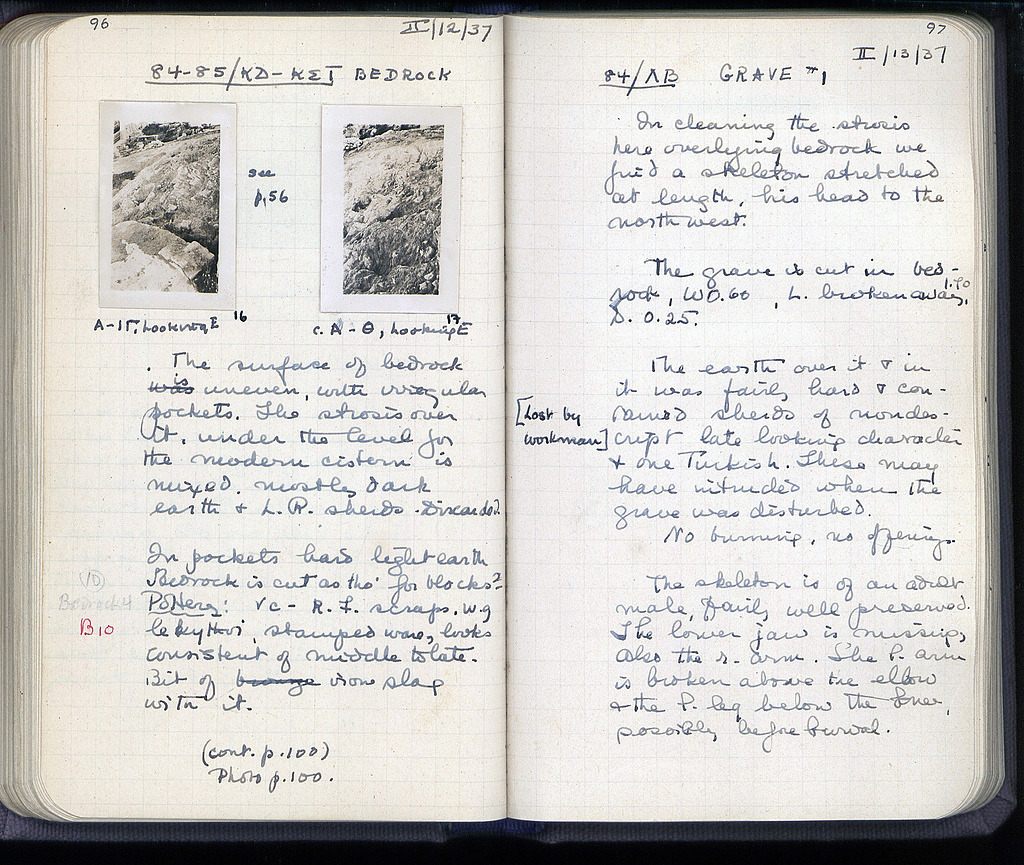 96
II/12/37
84-85/ΚΔ-ΚΣΤ BEDROCK
see
p. 56
A-IΓ, Looking E 16
c. A-Θ, Looking E 17
The surface of bedrock
was is uneven, with irregular
pockets. The strosis over
it, under the level for
the modern cistern is
mixed, mostly dark
earth & L.R. sherds. Discarded.
In pockets hard light earth
Bedrock is cut as tho' for blocks?
Pottery: Vc - R.F. scraps, W.g
lekythoi, stamped ware, looks
consistent of middle to late.
Bit of bronze iron slag
with it.
(VD)
Bedrock 4
B10
(cont. p. 100)
Photo p. 100.
97
II/13/37
84/ΛΒ GRAVE #1
In cleaning the strosis
here overlying bedrock we
find a skeleton stretched
at length, his head to the
northwest.
The grave is cut in bed-
rock, W 0.60, L. broken away, 1.70
D. 0.25.
The earth over it & in
it was fairly hard & con-
tained sherds of nondes-
[Lost by
workman]
cript late looking character
& one Turkish. These may
have intruded when the
grave was disturbed.
No burning, no offerings.
The skeleton is of an adult
male, fairly well preserved.
The lower jaw is missing,
also the r. arm. The l. arm
is broken above the elbow
& the l. leg below the knee,
possibly before burial.